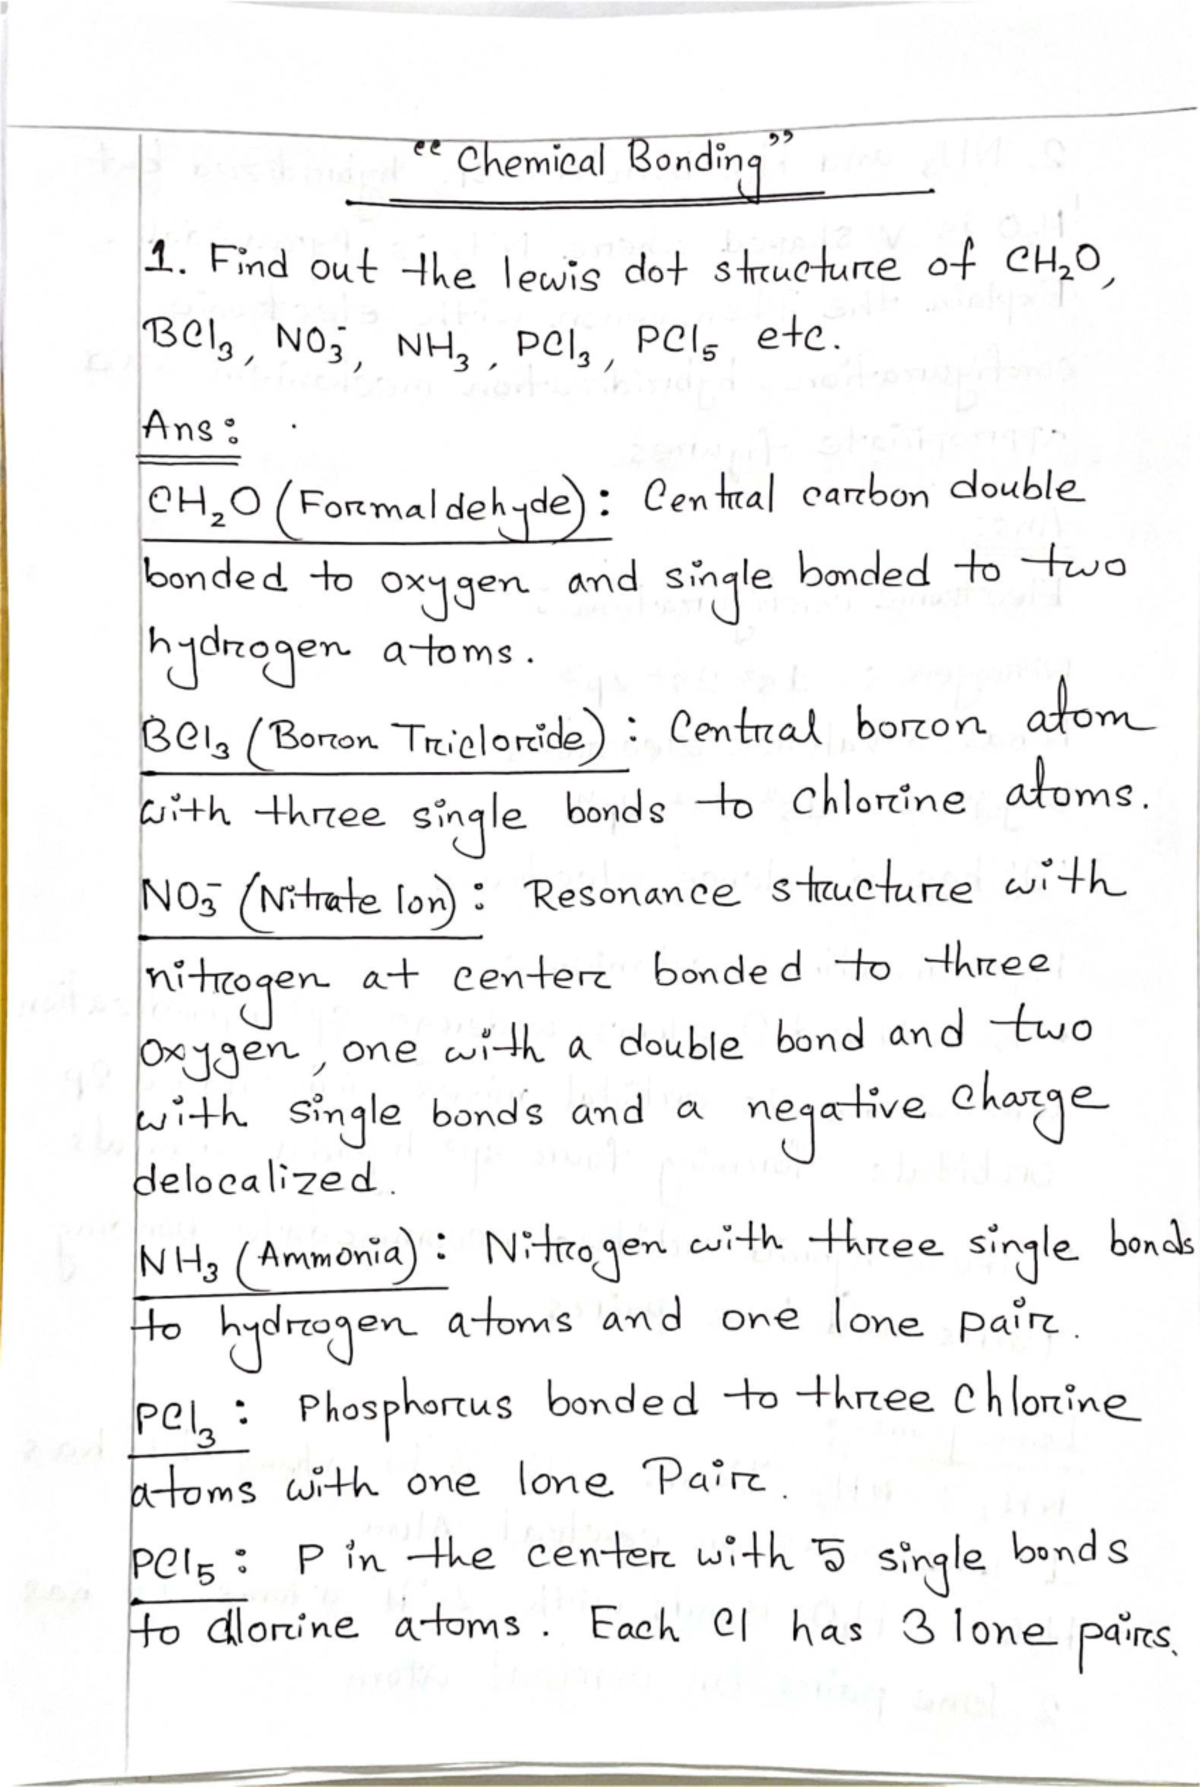 “Chemical Bonding”
1. Find out the lewis dot structure of CH₂O,
BCl₃, NO₃⁻, NH₃, PCl₃, PCl₅ etc.
Ans:
CH₂O (Formaldehyde): Central carbon double
bonded to oxygen and single bonded to two
hydrogen atoms.
BCl₃ (Boron Tricloride): Central boron atom
with three single bonds to chlorine atoms.
NO₃⁻ (Nitrate Ion): Resonance structure with
nitrogen at center bonded to three
oxygen, one with a double bond and two
with single bonds and a negative charge
delocalized.
NH₃ (Ammonia): Nitrogen with three single bonds
to hydrogen atoms and one lone pair.
PCl₃: Phosphorus bonded to three chlorine
atoms with one lone Pair.
PCl₅: P in the center with 5 single bonds
to chlorine atoms. Each Cl has 3 lone pairs.